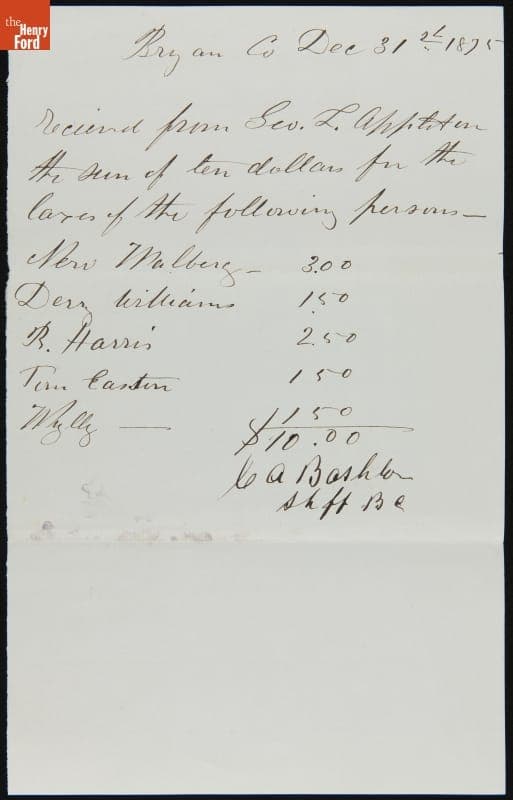 the
Henry
Ford
Bryan Co Dec 31st 1875
Recieved from Geo. L. Appleton
the sum of ten dollars for the
taxes of the following persons —
New Malberg — 3.00
Derry Williams 1.50
R. Harris 2.50
Tim Easton 1 50
Wylly — 1 50
$10.00
C A Bashlor
Shff B C